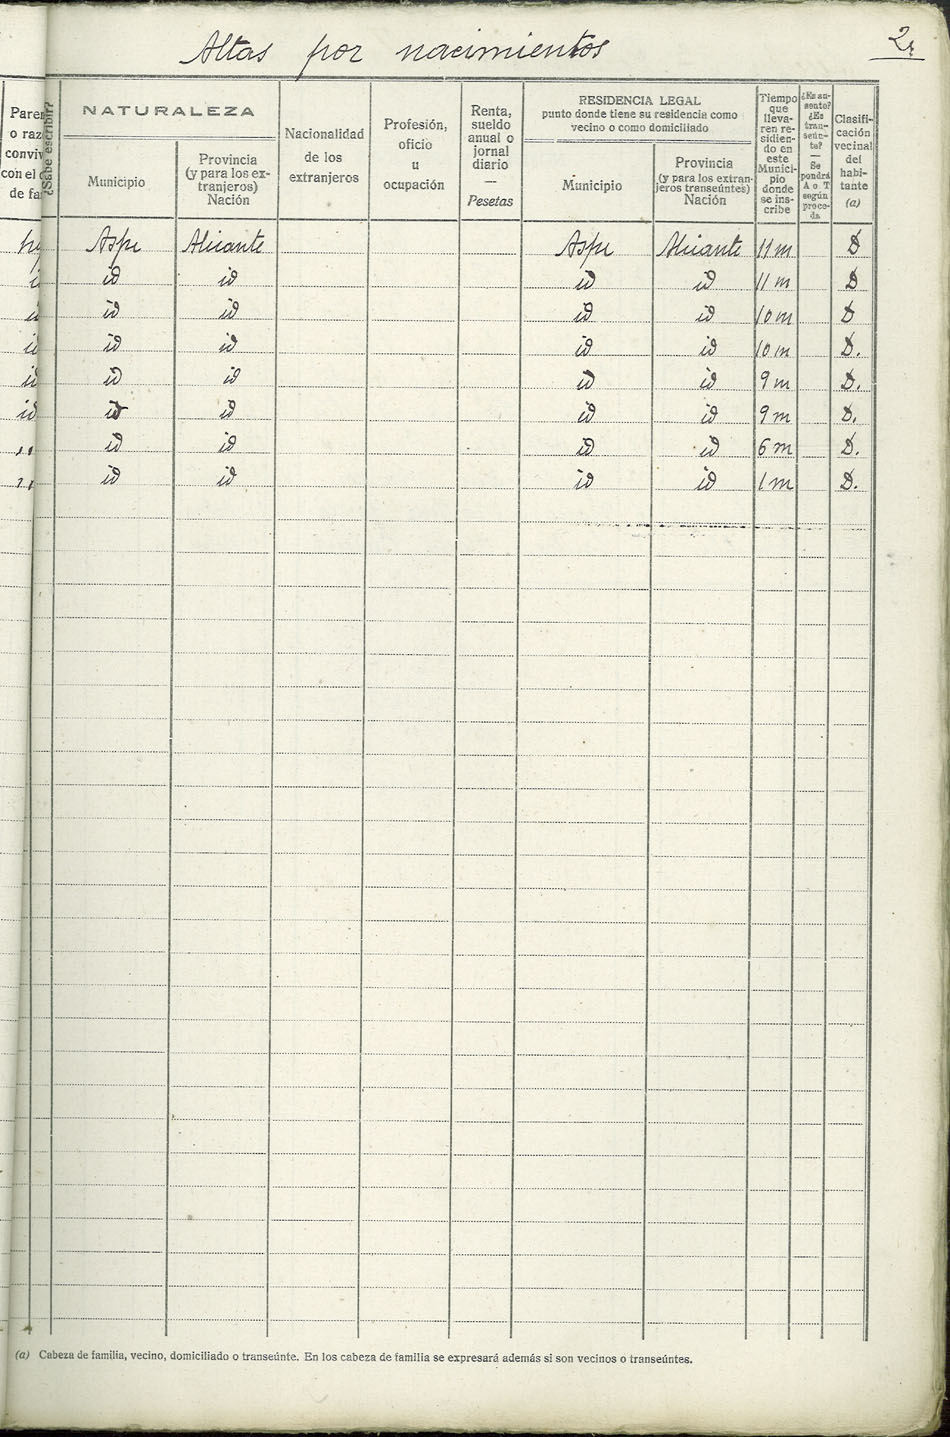 Altas por nacimientos
2
Paren
o raz
conviv
con el c
de fa
¿Sabe escribir?
NATURALEZA
Municipio
Provincia
(y para los ex-
tranjeros)
Nación
Nacionalidad
de los
extranjeros
Profesión,
oficio
u
ocupación
Renta,
sueldo
anual o
jornal
diario
—
Pesetas
RESIDENCIA LEGAL
punto donde tiene su residencia como
vecino o como domiciliado
Municipio
Provincia
(y para los extran-
jeros transeúntes)
Nación
Tiempo
que
lleva-
ren re-
sidien-
do en
este
Munici-
pio
donde
se ins-
cribe
¿Es au-
sente?
¿Es
tran-
seún-
te?
—
Se
pondrá
A o T
según
proce-
da
Clasifi-
cación
vecinal
del
habi-
tante
(a)
Aspe Alicante Aspe Alicante 11 m D
id id id id 11 m D
id id id id 10 m D
id id id id 10 m D.
id id id id 9 m D.
id id id id id 9 m D.
id id id id 6 m D.
id id id id 1 m D.
(a) Cabeza de familia, vecino, domiciliado o transeúnte. En los cabeza de familia se expresará además si son vecinos o transeúntes.